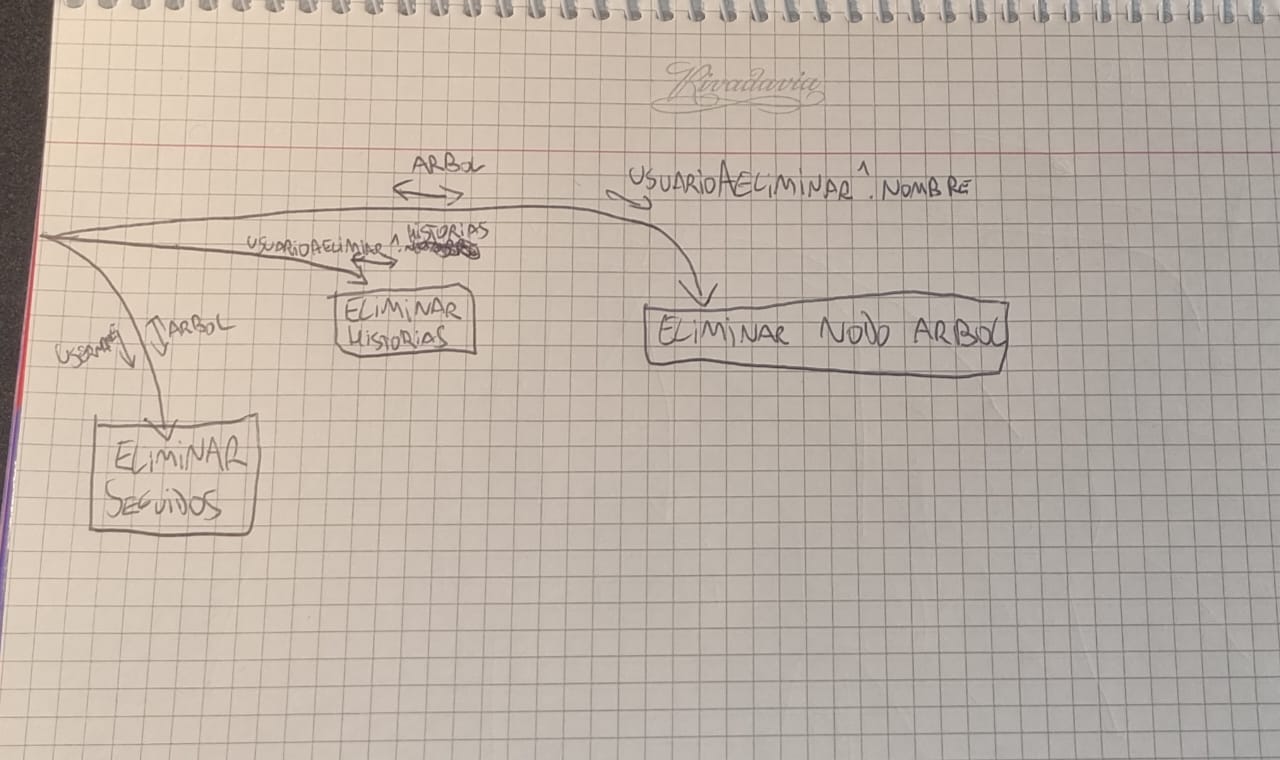 Rivadavia
ARBOL
USUARIOAELIMINAR^.NOMBRE
USUARIOAELIMIAR^.HISTORIAS
ELIMINAR
HISTORIAS
ELIMINAR NODO ARBOL
ARBOL
ELIMINAR
SEGUIDOS